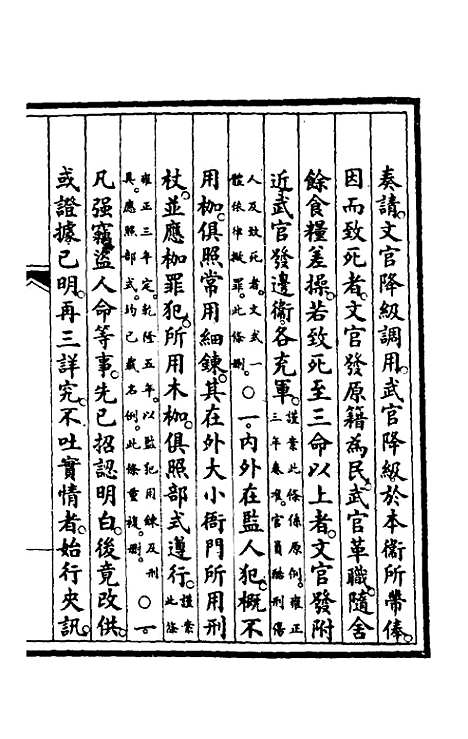 奏請。文官降級調用。武官降級於本衞所帶俸。
因而致死者。文官發原籍爲民。武官革職。隨舍
餘食糧差操。若致死至三命以上者。文官發附
近。武官發邊衞。各充軍。謹案此條係原例。雍正三年奏准。官員酷刑傷
人及致死者。文武一體依律擬罪。此條刪。〇一。內外在監人犯。概不
用枷。俱照常用細鍊。其在外大小衙門所用刑
杖。並應枷罪犯。所用木枷。俱照部式遵行。謹案此條
雍正三年定。乾隆五年。以監犯用鍊及刑具。應照部式。均已載名例。此條重複。刪。〇一。
凡强竊盜人命等事。先已招認明白。後竟改供。
或證據已明。再三詳究。不吐實情者。始行夾訊。